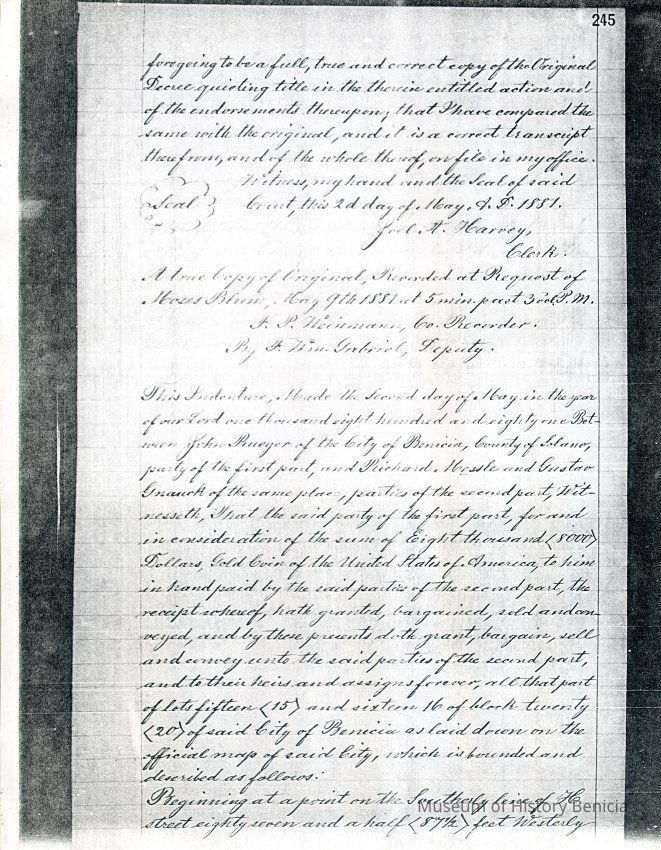 245
foregoing to be a full, true and correct copy of the Original
Decree quieting title in the therein entitled action and
of the endorsements thereupon; that I have compared the
same with the original, and it is a correct transcript
therefrom, and of the whole thereof, on file in my office.
Witness, my hand and the Seal of said
Seal
Court, this 2d day of May A.D. 1881.
Joel A. Harvey,
Clerk.
A true Copy of Original, Recorded at Request of
Moses Blum, May 9th 1881 at 5 min. past 3 ocl. P.M.
F. P. Weinmann, Co. Recorder.
By F. Wm. Gabriel, Deputy.
This Indenture, Made the Second day of May in the year
of our Lord one thousand eight hundred and eighty one Bet-
ween John Rueger of the City of Benicia, County of Solano,
party of the first part, and Richard Messle and Gustav
Gnauck of the same place, parties of the second part, Wit-
nesseth, That the said party of the first part, for and
in consideration of the sum of Eight thousand (8000)
Dollars, Gold Coin of the United States of America, to him
in hand paid by the said parties of the second part, the
receipt whereof, hath granted, bargained, sold and con-
veyed, and by these presents doth grant, bargain, sell
and convey unto the said parties of the second part,
and to their heirs and assigns forever, all that part
of lots fifteen (15) and sixteen 16 of block twenty
(20) of said City of Benicia as laid down on the
official map of said City, which is bounded and
described as follows:
Beginning at a point on the Southerly line of H
street eighty seven and a half (87½) feet Westerly
Museum of History Benicia